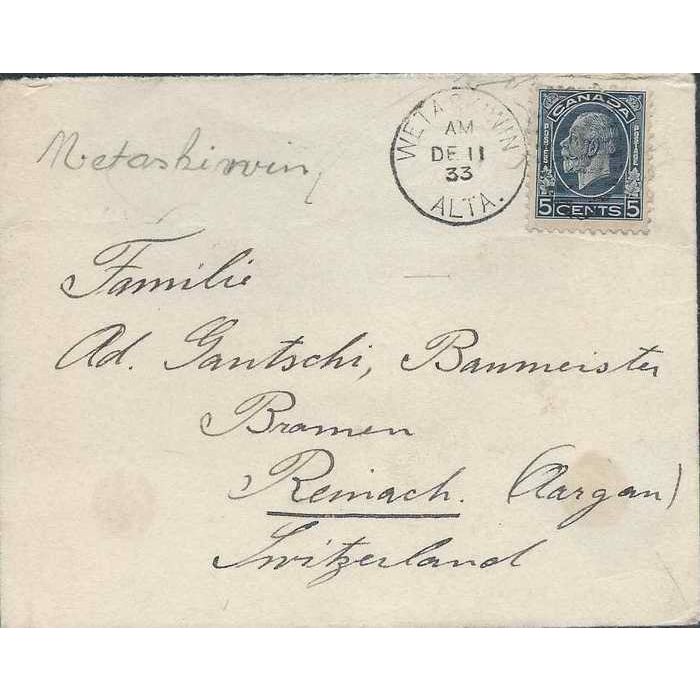 Wetaskiwin
WETASKIWIN
AM
DE 11
33
ALTA.
CANADA
POSTES POSTAGE
5 CENTS 5
Familie
Ad. Gautschi, Baumeister
Bramen
Reinach. (Aargau)
Switzerland